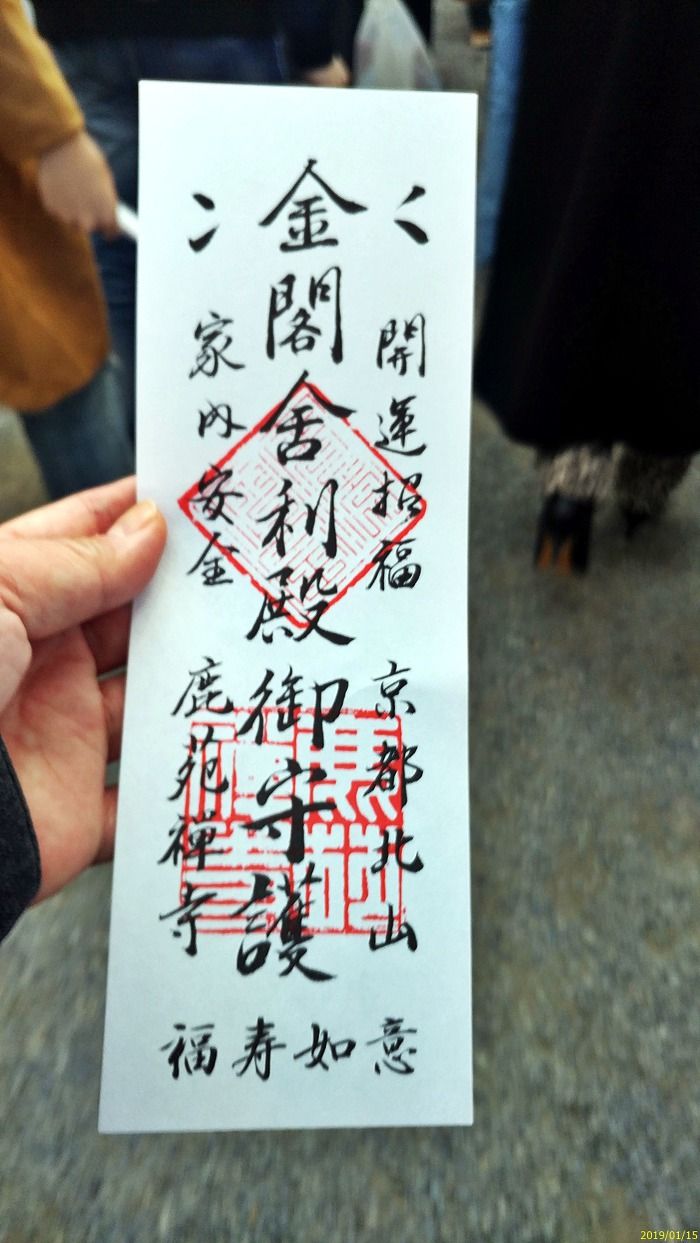 開運招福
京都北山
金閣舎利殿御守護
家内安全
鹿苑禪寺
福寿如意
2019/01/15